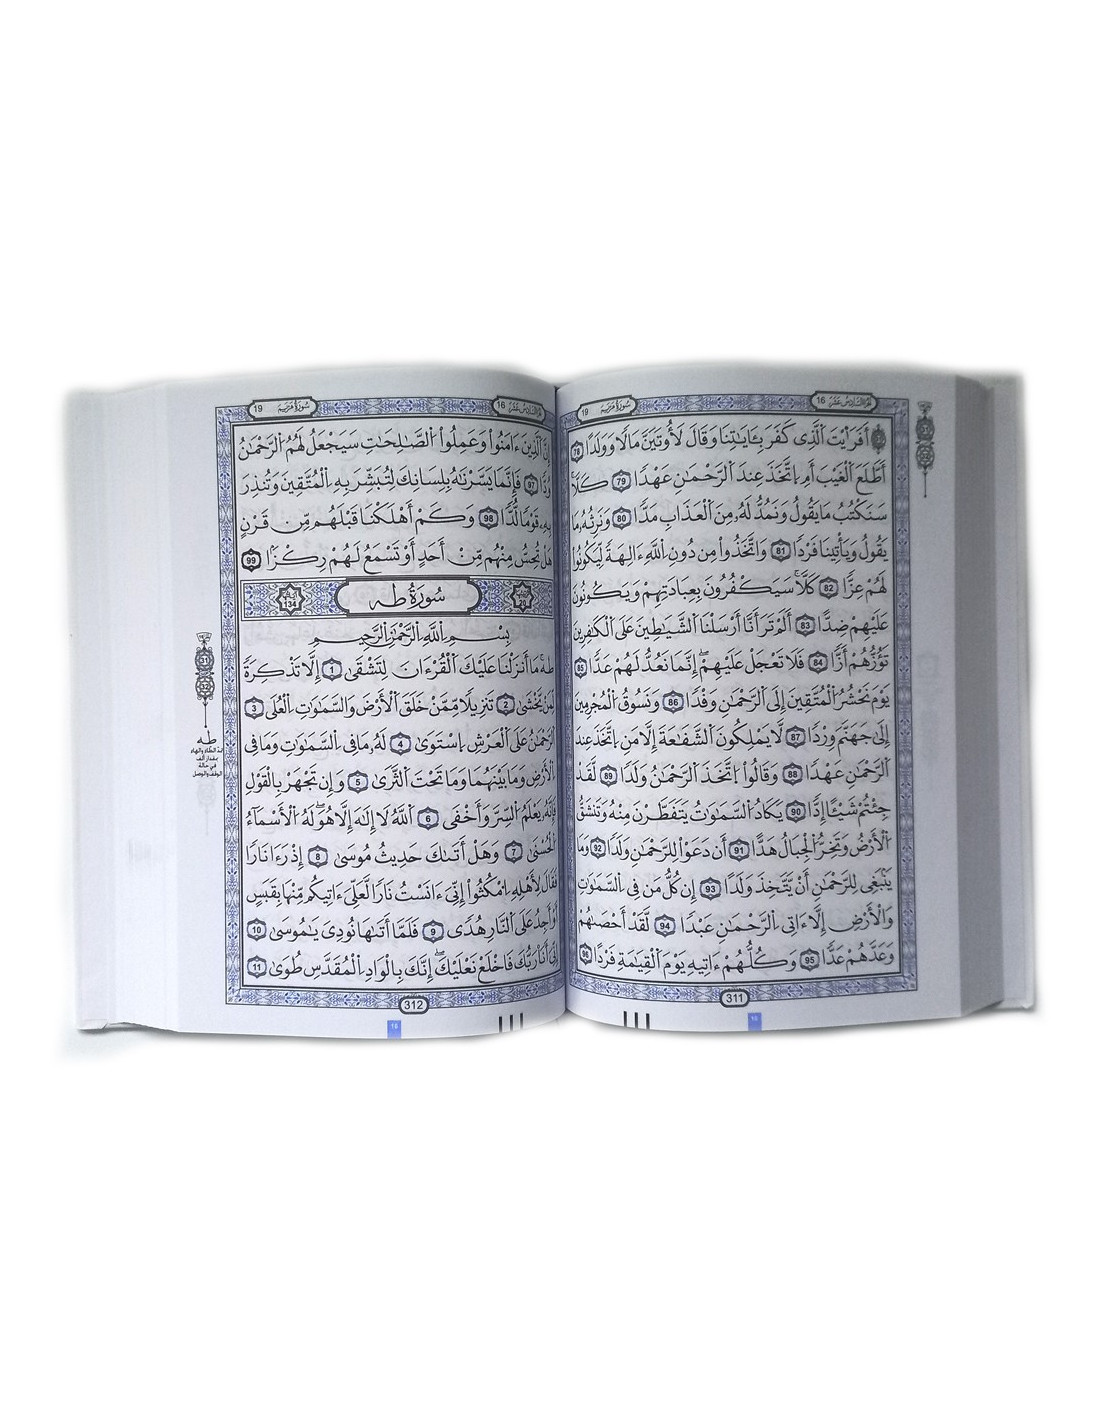 الجزء السادس عشر 16 سورة مريم 19
أَفَرَٰيْتَ ٱلَّذِى كَفَرَ بِـَٔايَٰتِنَا وَقَالَ لَأُوتَيَنَّ مَالًا وَوَلَدًا 78
أَطَّلَعَ ٱلْغَيْبَ أَمِ ٱتَّخَذَ عِندَ ٱلرَّحْمَٰنِ عَهْدًا 79 كَلَّا
سَنَكْتُبُ مَا يَقُولُ وَنَمُدُّ لَهُۥ مِنَ ٱلْعَذَابِ مَدًّا 80 وَنَرِثُهُۥ مَا
يَقُولُ وَيَأْتِينَا فَرْدًا 81 وَٱتَّخَذُوا۟ مِن دُونِ ٱللَّهِ ءَالِهَةً لِّيَكُونُوا۟
لَهُمْ عِزًّا 82 كَلَّا سَيَكْفُرُونَ بِعِبَادَتِهِمْ وَيَكُونُونَ
عَلَيْهِمْ ضِدًّا 83 أَلَمْ تَرَ أَنَّا أَرْسَلْنَا ٱلشَّيَٰطِينَ عَلَى ٱلْكَٰفِرِينَ
تَؤُزُّهُمْ أَزًّا 84 فَلَا تَعْجَلْ عَلَيْهِمْ إِنَّمَا نَعُدُّ لَهُمْ عَدًّا 85
يَوْمَ نَحْشُرُ ٱلْمُتَّقِينَ إِلَى ٱلرَّحْمَٰنِ وَفْدًا 86 وَنَسُوقُ ٱلْمُجْرِمِينَ
إِلَىٰ جَهَنَّمَ وِرْدًا 87 لَّا يَمْلِكُونَ ٱلشَّفَٰعَةَ إِلَّا مَنِ ٱتَّخَذَ عِندَ
ٱلرَّحْمَٰنِ عَهْدًا 88 وَقَالُوا۟ ٱتَّخَذَ ٱلرَّحْمَٰنُ وَلَدًا 89 لَّقَدْ
جِئْتُمْ شَيْـًٔا إِدًّا 90 يَكَادُ ٱلسَّمَٰوَٰتُ يَتَفَطَّرْنَ مِنْهُ وَتَنشَقُّ
ٱلْأَرْضُ وَتَخِرُّ ٱلْجِبَالُ هَدًّا 91 أَن دَعَوْا۟ لِلرَّحْمَٰنِ وَلَدًا 92 وَمَا
يَنۢبَغِى لِلرَّحْمَٰنِ أَنْ يَّتَّخِذَ وَلَدًا 93 إِن كُلُّ مَن فِى ٱلسَّمَٰوَٰتِ
وَٱلْأَرْضِ إِلَّا ءَاتِى ٱلرَّحْمَٰنِ عَبْدًا 94 لَّقَدْ أَحْصَىٰهُمْ
وَعَدَّهُمْ عَدًّا 95 وَكُلُّهُمْ ءَاتِيهِ يَوْمَ ٱلْقِيَٰمَةِ فَرْدًا 96
311
الجزء السادس عشر 16 سورة مريم 19
إِنَّ ٱلَّذِينَ ءَامَنُوا۟ وَعَمِلُوا۟ ٱلصَّٰلِحَٰتِ سَيَجْعَلُ لَهُمُ ٱلرَّحْمَٰنُ
وُدًّا 97 فَإِنَّمَا يَسَّرْنَٰهُ بِلِسَانِكَ لِتُبَشِّرَ بِهِ ٱلْمُتَّقِينَ وَتُنذِرَ
بِهِۦ قَوْمًا لُّدًّا 98 وَكَمْ أَهْلَكْنَا قَبْلَهُم مِّن قَرْنٍ
هَلْ تُحِسُّ مِنْهُم مِّنْ أَحَدٍ أَوْ تَسْمَعُ لَهُمْ رِكْزًا 99
سورة طه 134
بِسْمِ ٱللَّهِ ٱلرَّحْمَٰنِ ٱلرَّحِيمِ
طه مَا أَنزَلْنَا عَلَيْكَ ٱلْقُرْءَانَ لِتَشْقَىٰ 1 إِلَّا تَذْكِرَةً
لِّمَنْ يَّخْشَىٰ 2 تَنزِيلًا مِّمَّنْ خَلَقَ ٱلْأَرْضَ وَٱلسَّمَٰوَٰتِ ٱلْعُلَى 3
ٱلرَّحْمَٰنُ عَلَى ٱلْعَرْشِ ٱسْتَوَىٰ 4 لَهُۥ مَا فِى ٱلسَّمَٰوَٰتِ وَمَا فِى
ٱلْأَرْضِ وَمَا بَيْنَهُمَا وَمَا تَحْتَ ٱلثَّرَىٰ 5 وَإِن تَجْهَرْ بِٱلْقَوْلِ
فَإِنَّهُۥ يَعْلَمُ ٱلسِّرَّ وَأَخْفَى 6 ٱللَّهُ لَا إِلَٰهَ إِلَّا هُوَ لَهُ ٱلْأَسْمَآءُ
ٱلْحُسْنَىٰ 7 وَهَلْ أَتَىٰكَ حَدِيثُ مُوسَىٰ 8 إِذْ رَءَا نَارًا
فَقَالَ لِأَهْلِهِ ٱمْكُثُوا۟ إِنِّىَ ءَانَسْتُ نَارًا لَّعَلِّىَ ءَاتِيكُم مِّنْهَا بِقَبَسٍ
أَوْ أَجِدُ عَلَى ٱلنَّارِ هُدًى 9 فَلَمَّا أَتَىٰهَا نُودِىَ يَٰمُوسَىٰ 10
إِنِّىَ أَنَا رَبُّكَ فَٱخْلَعْ نَعْلَيْكَ إِنَّكَ بِٱلْوَادِ ٱلْمُقَدَّسِ طُوَىٰ 11
312
31
طه
مد الطاء والهاء
بمقدار ألف
في حالة
الوقف والوصل